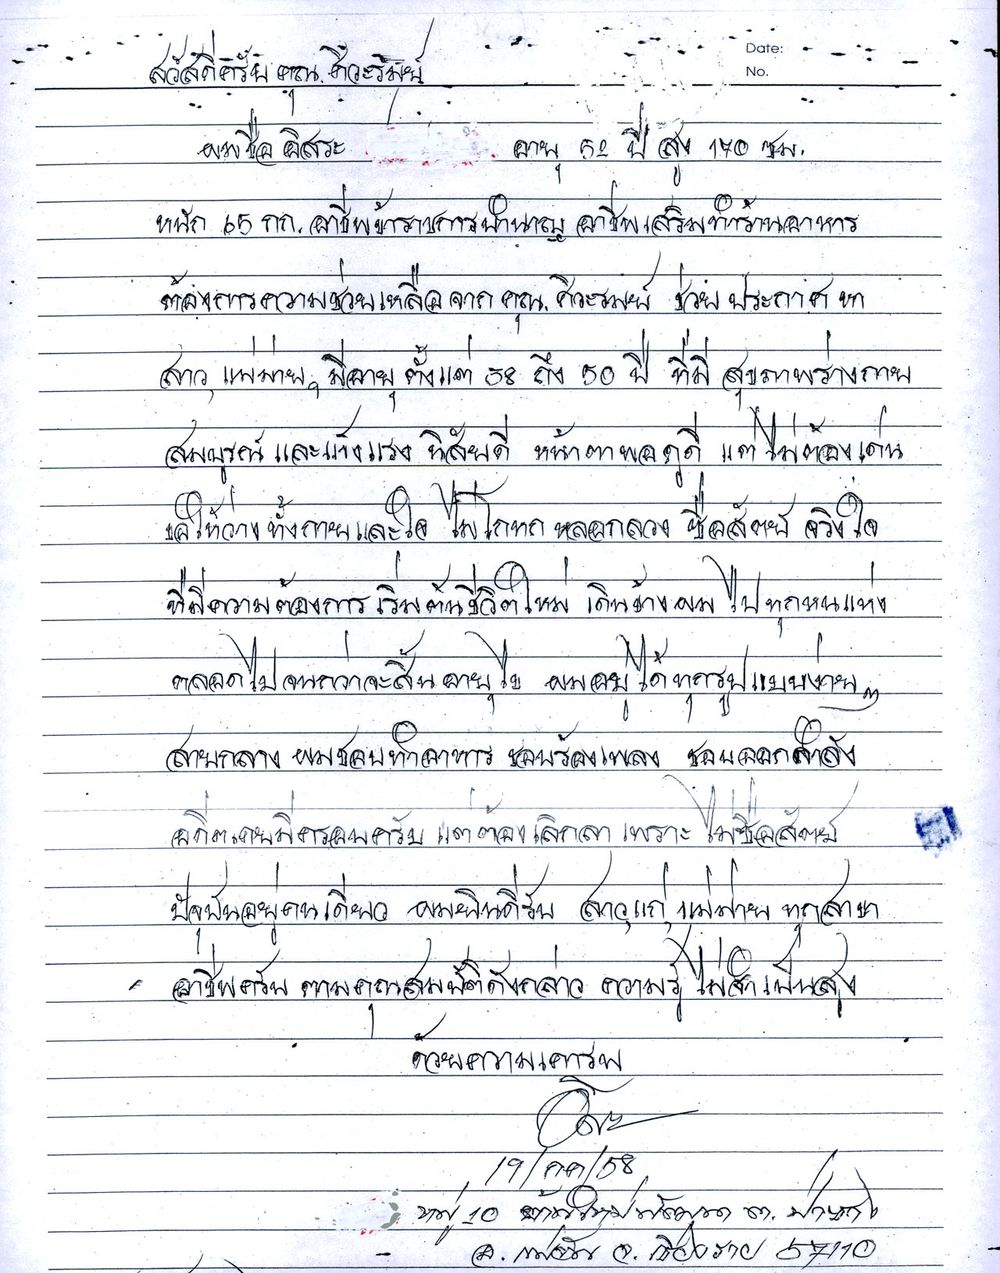 Date:
No.
สวัสดีครับ คุณ.ศิวะรัมย์
ผมชื่อ อิสระ อายุ 52 ปี สูง 170 ซม.
หนัก 65 กก. อาชีพข้าราชการบำนาญ อาชีพเสริมทำร้านอาหาร
ต้องการความช่วยเหลือจาก คุณ.ศิวะรมย์ ช่วย ประกาศ หา
สาว, แม่ม่าย, มีอายุ ตั้งแต่ 38 ถึง 50 ปี ที่มี สุขภาพร่างกาย
สมบูรณ์ และแข็งแรง นิสัยดี หน้าตาพอดูดี แต่ไม่ต้องเด่น
ขอให้ว่างทั้งกายและใจ ไม่โกหก หลอกลวง ซื่อสัตย์ จริงใจ
ที่มีความต้องการ เริ่มต้นชีวิตใหม่ เดินข้างผม ไปทุกหนแห่ง
ตลอดไป จนกว่าจะสิ้นอายุไข ผมอยู่ได้ทุกรูปแบบง่ายๆ
สายกลาง ผมชอบทำอาหาร ชอบร้องเพลง ชอบออกกำลัง
อดีตเคยมีครอบครับ แต่ต้องเลิกลา เพราะ ไม่ซื่อสัตย์
ปัจุบันอยู่คนเดียว ผมยินดีรับ สาวแก่, แม่ม่าย ทุกสาขา
อาชีพครับ ตามคุณสมบัติดังกล่าว ความรู้ไม่จำเป็นสูง
ด้วยความเคารพ
19/กค/58
หมู่ 10 ต.ป่า
อ. จ.เชียงราย 57110